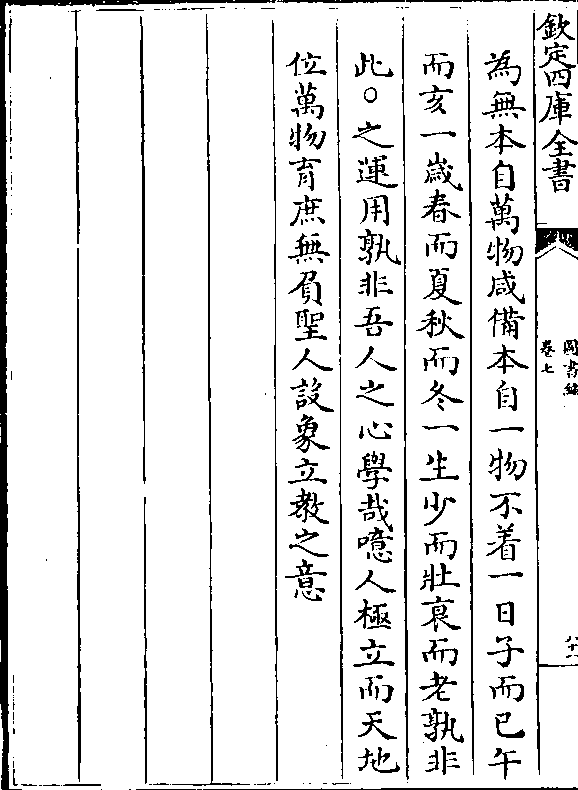 欽定四庫全書
圖書編
卷七
為無本自萬物咸備本自一物不着一日子而巳午
而亥一嵗春而夏秋而冬一生少而壯衰而老孰非
此○之運用孰非吾人之心學哉噫人極立而天地
位萬物育庶無負聖人設象立教之意